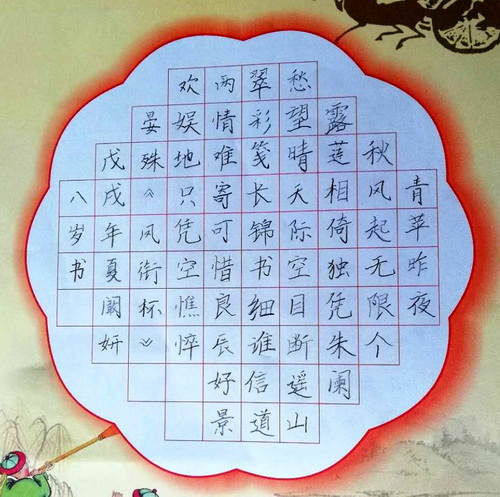 青苹昨夜
秋风起无限个
露莲相倚独凭朱阑
愁望晴天际空目断遥山
翠彩笺长锦书细谁信道
两情难寄可惜良辰好景
欢娱地只凭空憔悴
晏殊《凤衔杯》
戊戌年夏阚妍
八岁书